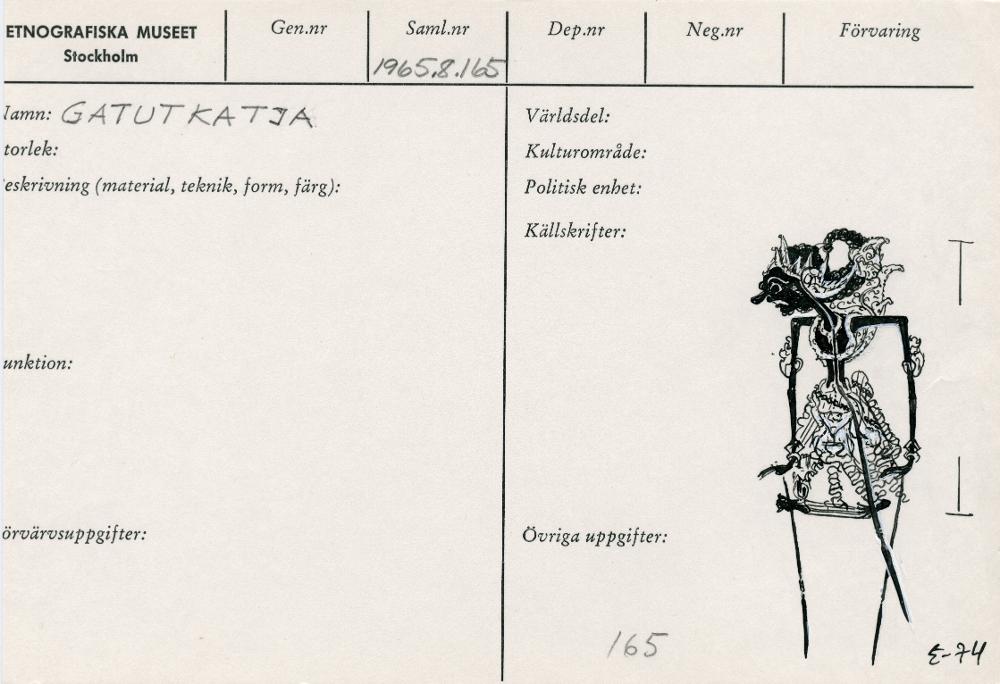 ETNOGRAFISKA MUSEET
Stockholm
Gen.nr
Saml.nr
1965.8.165
Dep.nr
Neg.nr
Förvaring
Namn: GATUTKATJA
torlek:
eskrivning (material, teknik, form, färg):
unktion:
örvärvsuppgifter:
Världsdel:
Kulturområde:
Politisk enhet:
Källskrifter:
Övriga uppgifter:
165
E-74